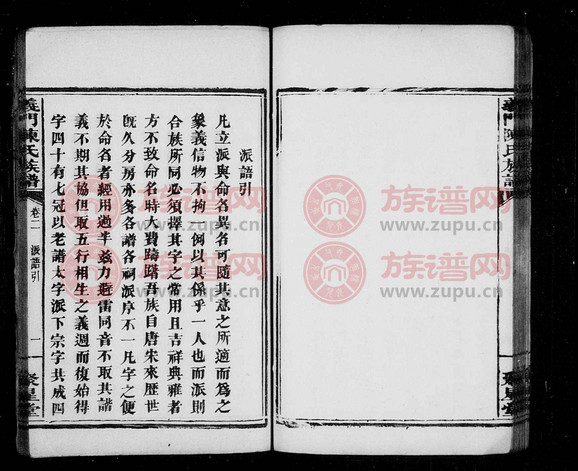 派語引
凡立派與命名異名可隨其意之所適而為之
象義信物不拘一例以其係乎一人也而派則
合族所同必須擇其字之常用且吉祥典雅者
方不致命名時大費躊躇吾族自唐宋來歷世
既久分房亦多各譜各祠派序不一凡字之便
於命名者經用過半玆力避雷同音不取其諧
義不期其協但取五行相生之義週而復始得
字四十有七冠以老譜大字派下宗字共成四
義門陳氏族譜
卷二
派語引
一
聚星堂
義門陳氏族譜
聚星堂
族谱网
www.zupu.cn
族谱网
www.zupu.cn
族谱网
www.zupu.cn
族谱网
www.zupu.cn